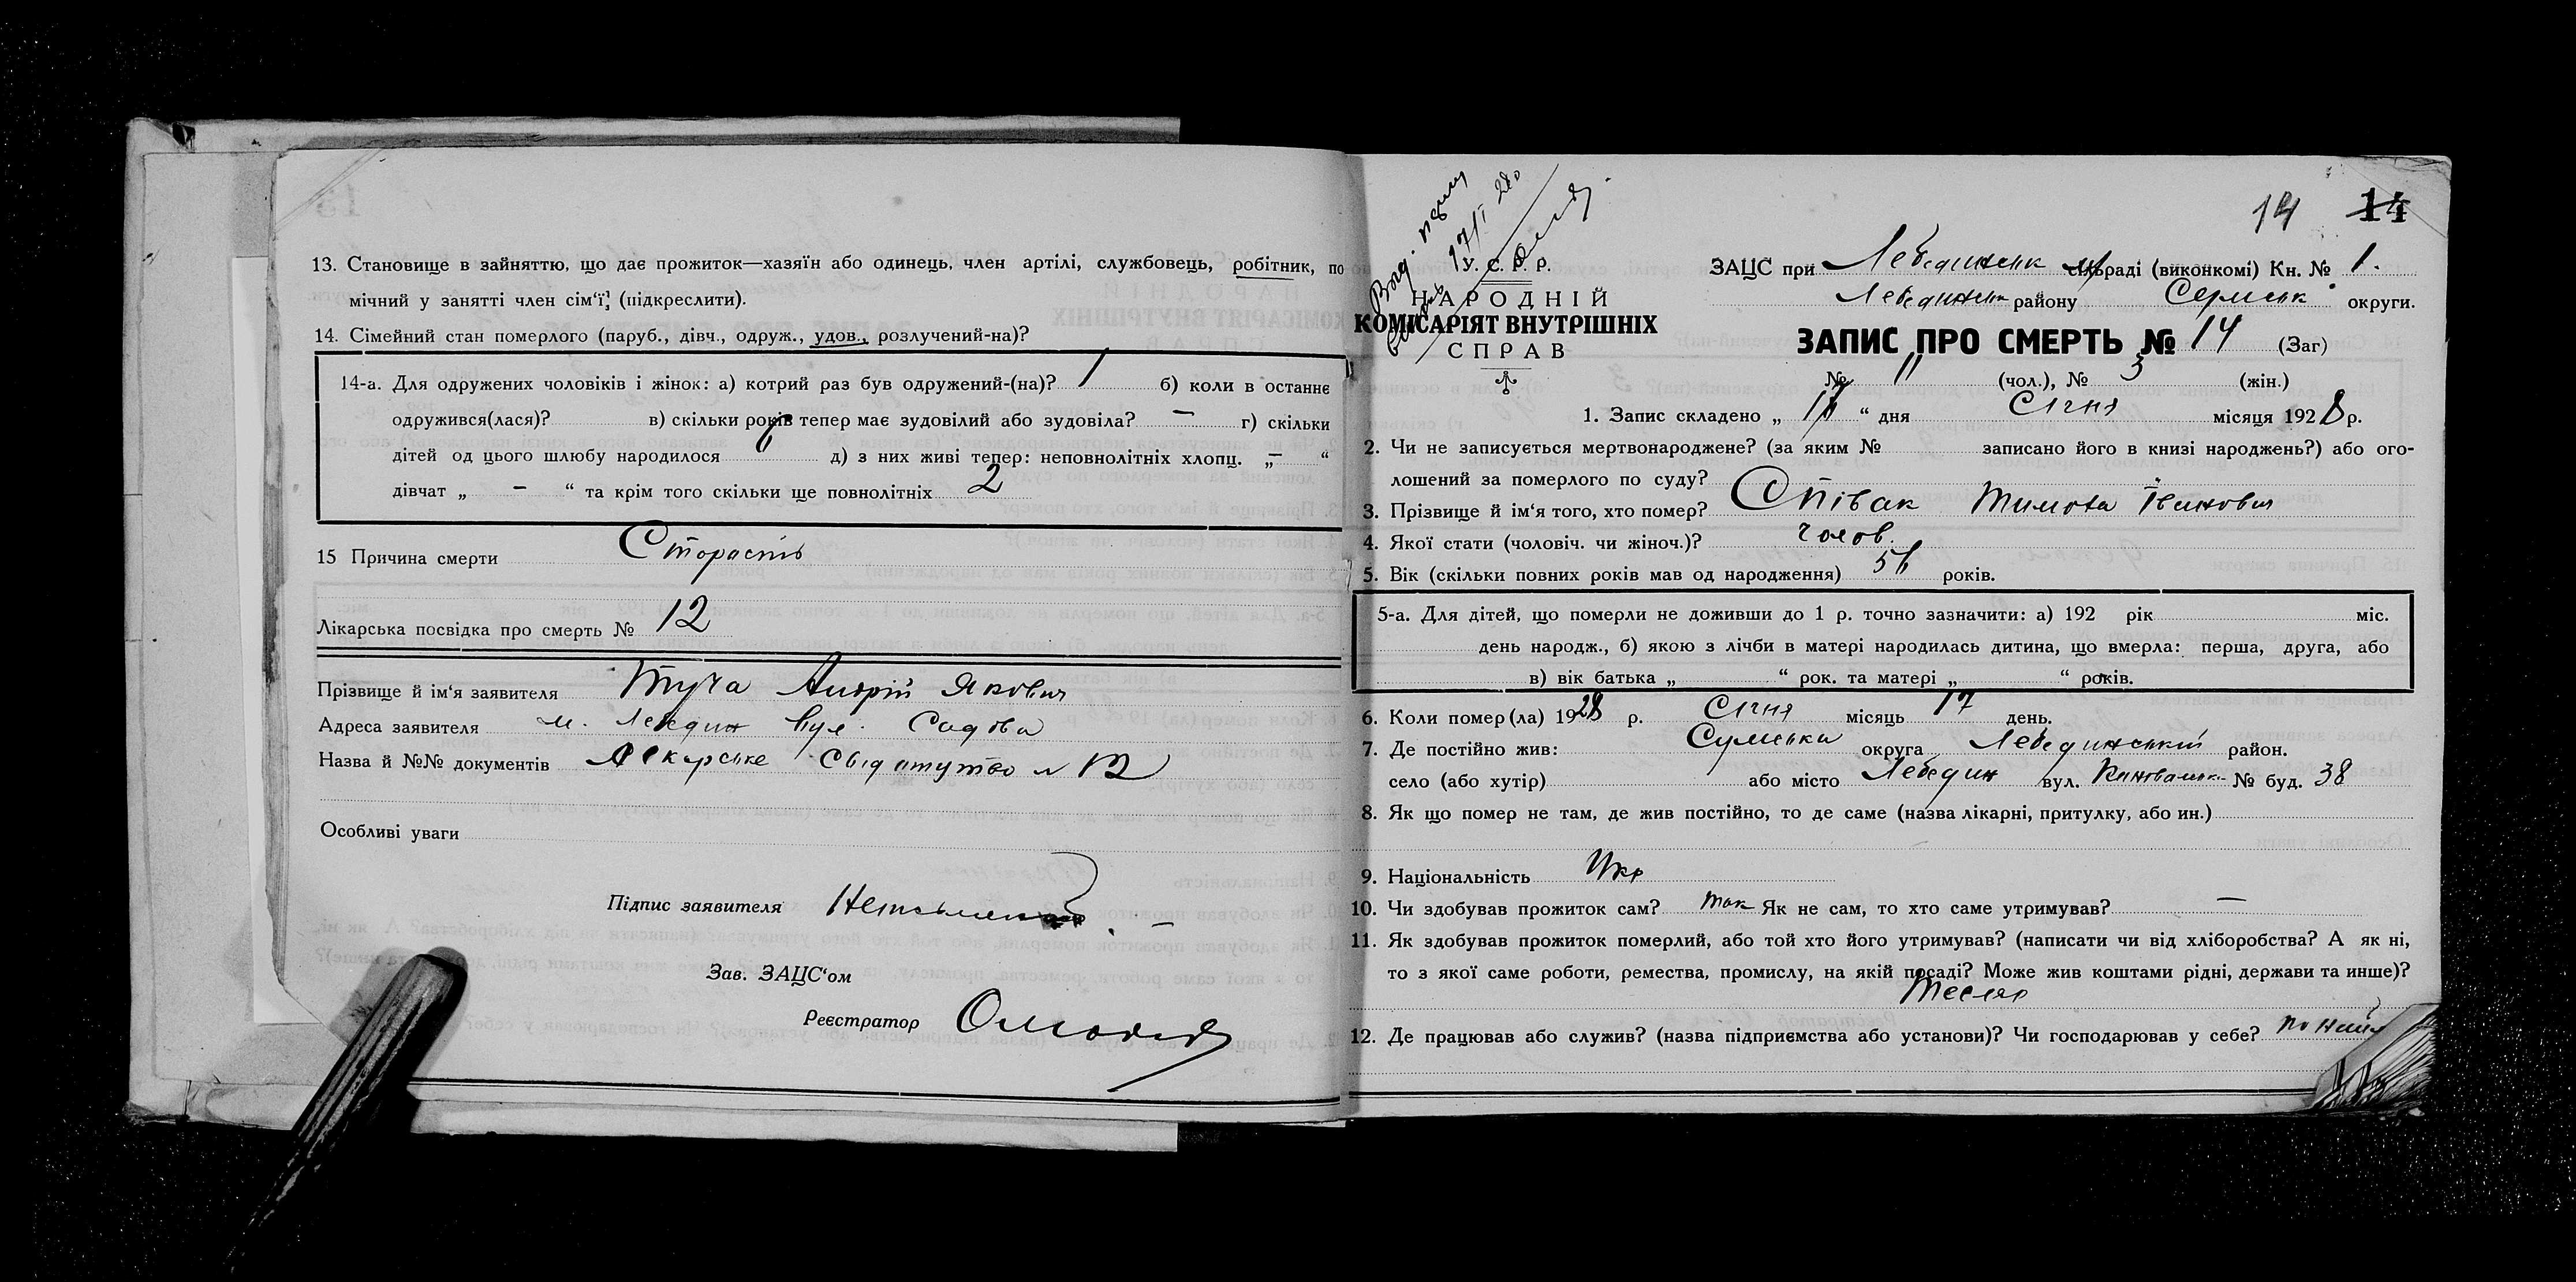 13. Становище в зайняттю, що дає прожиток—хазяїн або одинець, член артілі, службовець, робітник, по
мічний у занятті член сім'ї; (підкреслити).
14. Сімейний стан померлого (паруб., дівч., одруж., удов., розлучений-на)?
14-а. Для одружених чоловіків і жінок: а) котрий раз був одружений-(на)? 1 б) коли в останнє
одружився(лася)? в) скільки років тепер має зудовілий або зудовіла? — г) скільки
дітей од цього шлюбу народилося 6 д) з них живі тепер: неповнолітніх хлопц. „—“
дівчат „ — “ та крім того скільки ще повнолітніх 2
15 Причина смерти Старасть
Лікарська посвідка про смерть № 12
Прізвище й ім'я заявителя Туча Андрій Якович
Адреса заявителя м. Лебедин вул. Садова
Назва й №№ документів Лікарське свідоцтво № 12
Особливі уваги
Підпис заявителя
Зав. ЗАЦС'ом
Реєстратор
14 14
17/I 28
У. С. Р. Р.
НАРОДНІЙ
КОМІСАРІЯТ ВНУТРІШНІХ
СПРАВ
ЗАЦС при Лебединськ м/раді (виконкомі) Кн. № 1.
Лебединськ району Сумськ округи.
ЗАПИС ПРО СМЕРТЬ № 14 (Заг)
№ 11 (чол.), № 3 (жін.)
1. Запис складено „ 17 “ дня Січня місяця 1928 р.
2. Чи не записується мертвонароджене? (за яким № записано його в книзі народжень?) або ого-
лошений за померлого по суду?
3. Прізвище й ім'я того, хто помер? Співак Тимоха Іванович
4. Якої стати (чоловіч. чи жіноч.)? чолов.
5. Вік (скільки повних років мав од народження) 56 років.
5-а. Для дітей, що померли не доживши до 1 р. точно зазначити: а) 192 рік міс.
день народж., б) якою з лічби в матері народилась дитина, що вмерла: перша, друга, або
в) вік батька „ “ рок. та матері „ “ років.
6. Коли помер(ла) 1928 р. Січня місяць 17 день.
7. Де постійно жив: Сумська округа Лебединський район.
село (або хутір) або місто Лебедин вул. № буд. 38
8. Як що помер не там, де жив постійно, то де саме (назва лікарні, притулку, або ин.)
9. Національність Укр
10. Чи здобував прожиток сам? так Як не сам, то хто саме утримував? —
11. Як здобував прожиток померлий, або той хто його утримував? (написати чи від хліборобства? А як ні,
то з якої саме роботи, ремества, промислу, на якій посаді? Може жив коштами рідні, держави та инше)?
Тесляр
12. Де працював або служив? (назва підприємства або установи)? Чи господарював у себе? по